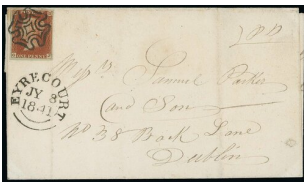 ONE PENNY
EYRECOURT
JY 8
1841
Messrs. Samuel Parker
and Son
No 38 Back Lane
Dublin